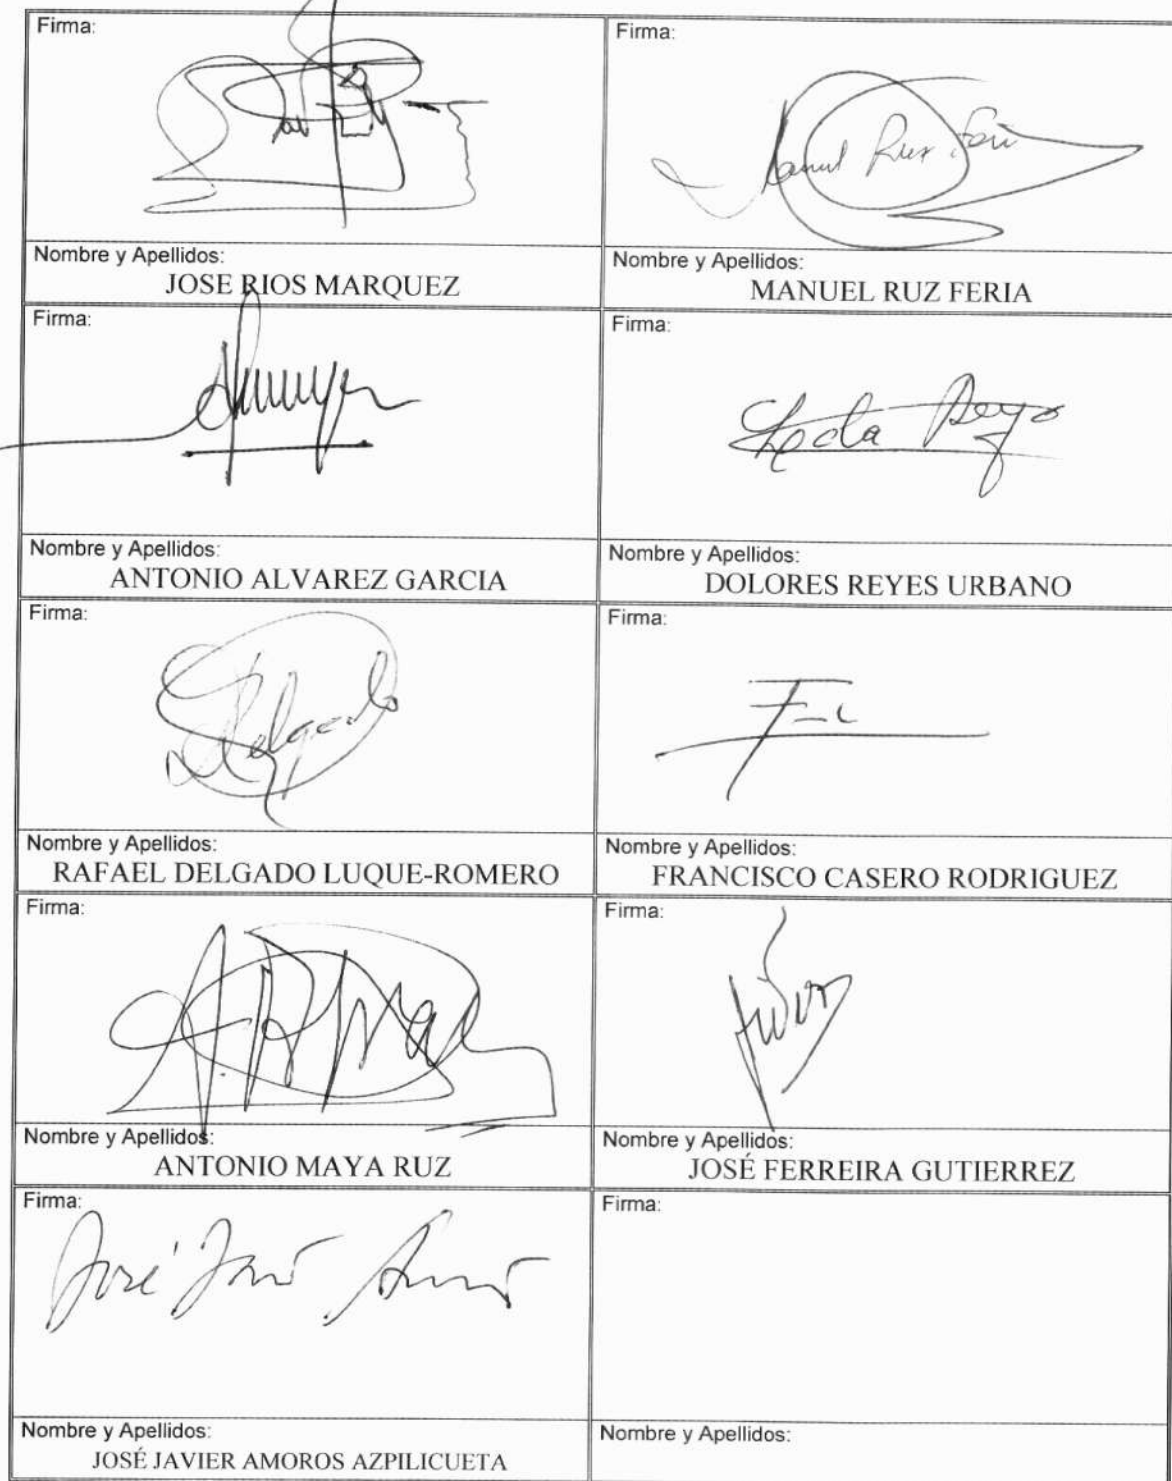 Firma:
Firma:
Manuel Ruz Feri
Nombre y Apellidos:
JOSE RIOS MARQUEZ
Nombre y Apellidos:
MANUEL RUZ FERIA
Firma:
Firma:
Nombre y Apellidos:
ANTONIO ALVAREZ GARCIA
Nombre y Apellidos:
DOLORES REYES URBANO
Firma:
Delgado
Firma:
Nombre y Apellidos:
RAFAEL DELGADO LUQUE-ROMERO
Nombre y Apellidos:
FRANCISCO CASERO RODRIGUEZ
Firma:
Firma:
Nombre y Apellidos:
ANTONIO MAYA RUZ
Nombre y Apellidos:
JOSÉ FERREIRA GUTIERREZ
Firma:
José
Firma:
Nombre y Apellidos:
JOSÉ JAVIER AMOROS AZPILICUETA
Nombre y Apellidos: